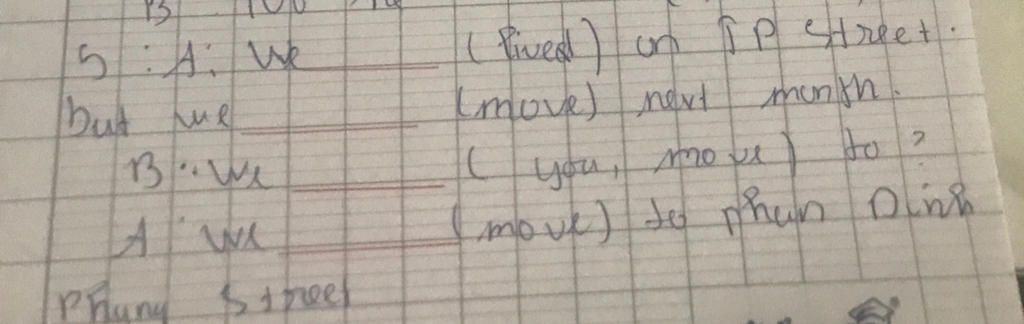 B
5 : A: We ______ (lived) on TP street.
but we ______ (move) next month.
B: We ______ (you, move) to?
A: We ______ (move) to phan Dinh
Phung Street